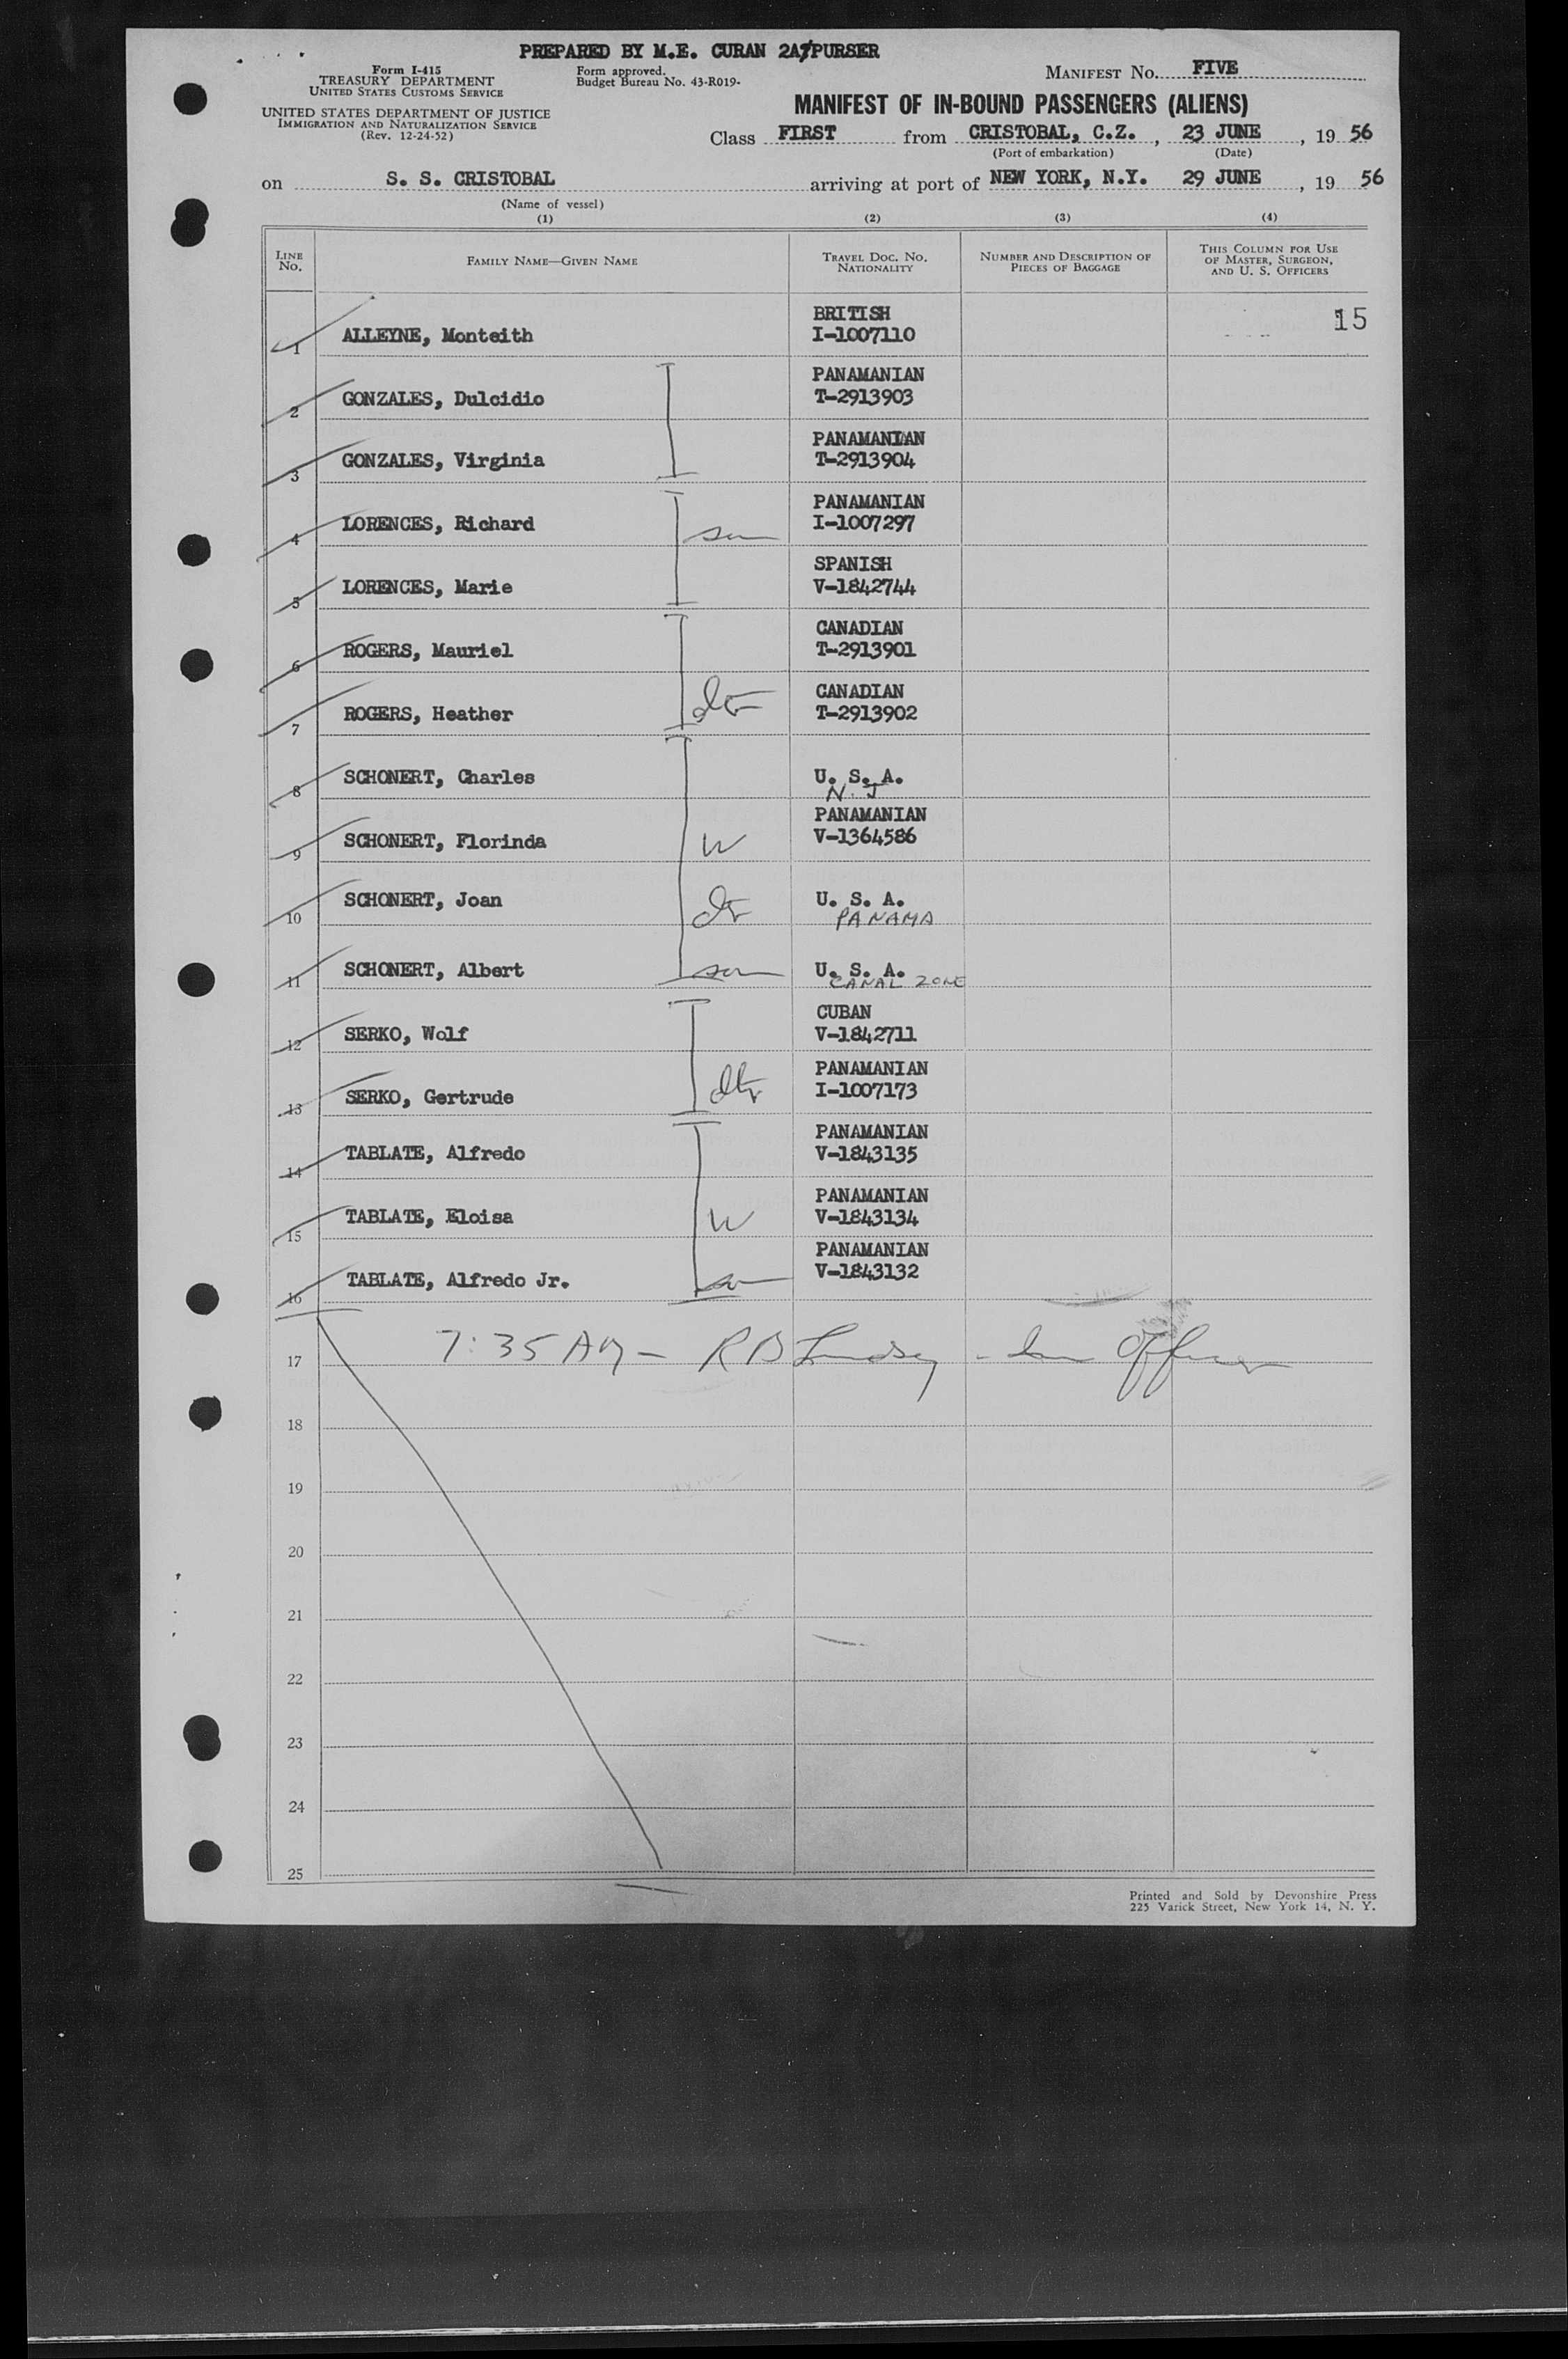 PREPARED BY M.E. CURAN 2A/PURSER
Form I-415
TREASURY DEPARTMENT
UNITED STATES CUSTOMS SERVICE
UNITED STATES DEPARTMENT OF JUSTICE
IMMIGRATION AND NATURALIZATION SERVICE
(Rev. 12-24-52)
Form approved.
Budget Bureau No. 43-R019-
MANIFEST NO. FIVE
MANIFEST OF IN-BOUND PASSENGERS (ALIENS)
Class FIRST from CRISTOBAL, C.Z., 23 JUNE, 19 56
(Port of embarkation) (Date)
on S. S. CRISTOBAL arriving at port of NEW YORK, N.Y. 29 JUNE, 19 56
(Name of vessel)
(1) (2) (3) (4)
LINE NO. FAMILY NAME—GIVEN NAME TRAVEL DOC. NO. NATIONALITY NUMBER AND DESCRIPTION OF PIECES OF BAGGAGE THIS COLUMN FOR USE OF MASTER, SURGEON, AND U. S. OFFICERS
15
BRITISH
1 ALLEYNE, Monteith I-1007110
PANAMANIAN
2 GONZALES, Dulcidio T-2913903
PANAMANIAN
3 GONZALES, Virginia T-2913904
PANAMANIAN
4 LORENCES, Richard son I-1007297
SPANISH
5 LORENCES, Marie V-1842744
CANADIAN
6 ROGERS, Mauriel T-2913901
CANADIAN
7 ROGERS, Heather dtr T-2913902
8 SCHONERT, Charles U. S. A.
N. J
PANAMANIAN
9 SCHONERT, Florinda W V-1364586
10 SCHONERT, Joan dtr U. S. A.
PANAMA
11 SCHONERT, Albert son U. S. A.
CANAL ZONE
CUBAN
12 SERKO, Wolf V-1842711
PANAMANIAN
13 SERKO, Gertrude dtr I-1007173
PANAMANIAN
14 TABLATE, Alfredo V-1843135
PANAMANIAN
15 TABLATE, Eloisa W V-1843134
PANAMANIAN
16 TABLATE, Alfredo Jr. son V-1843132
17 7:35 AM - R B Lindsey - Officer
18
19
20
21
22
23
24
25
Printed and Sold by Devonshire Press
225 Varick Street, New York 14, N. Y.